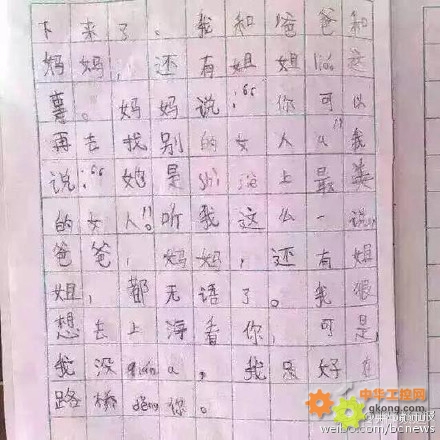 下来了。我和爸爸和
妈妈，还有姐姐liáo这
事。妈妈说：“你可以
再去找别的女人a”我
说：“她是shì jiè上最美
的女人”。听我这么一说，
爸爸，妈妈，还有姐
姐，都无语了。我很
想去上海看你，可是
我没qián a，我只好在
路桥děng你。
中华工控网
gkong.com
weibo.com/bcnews